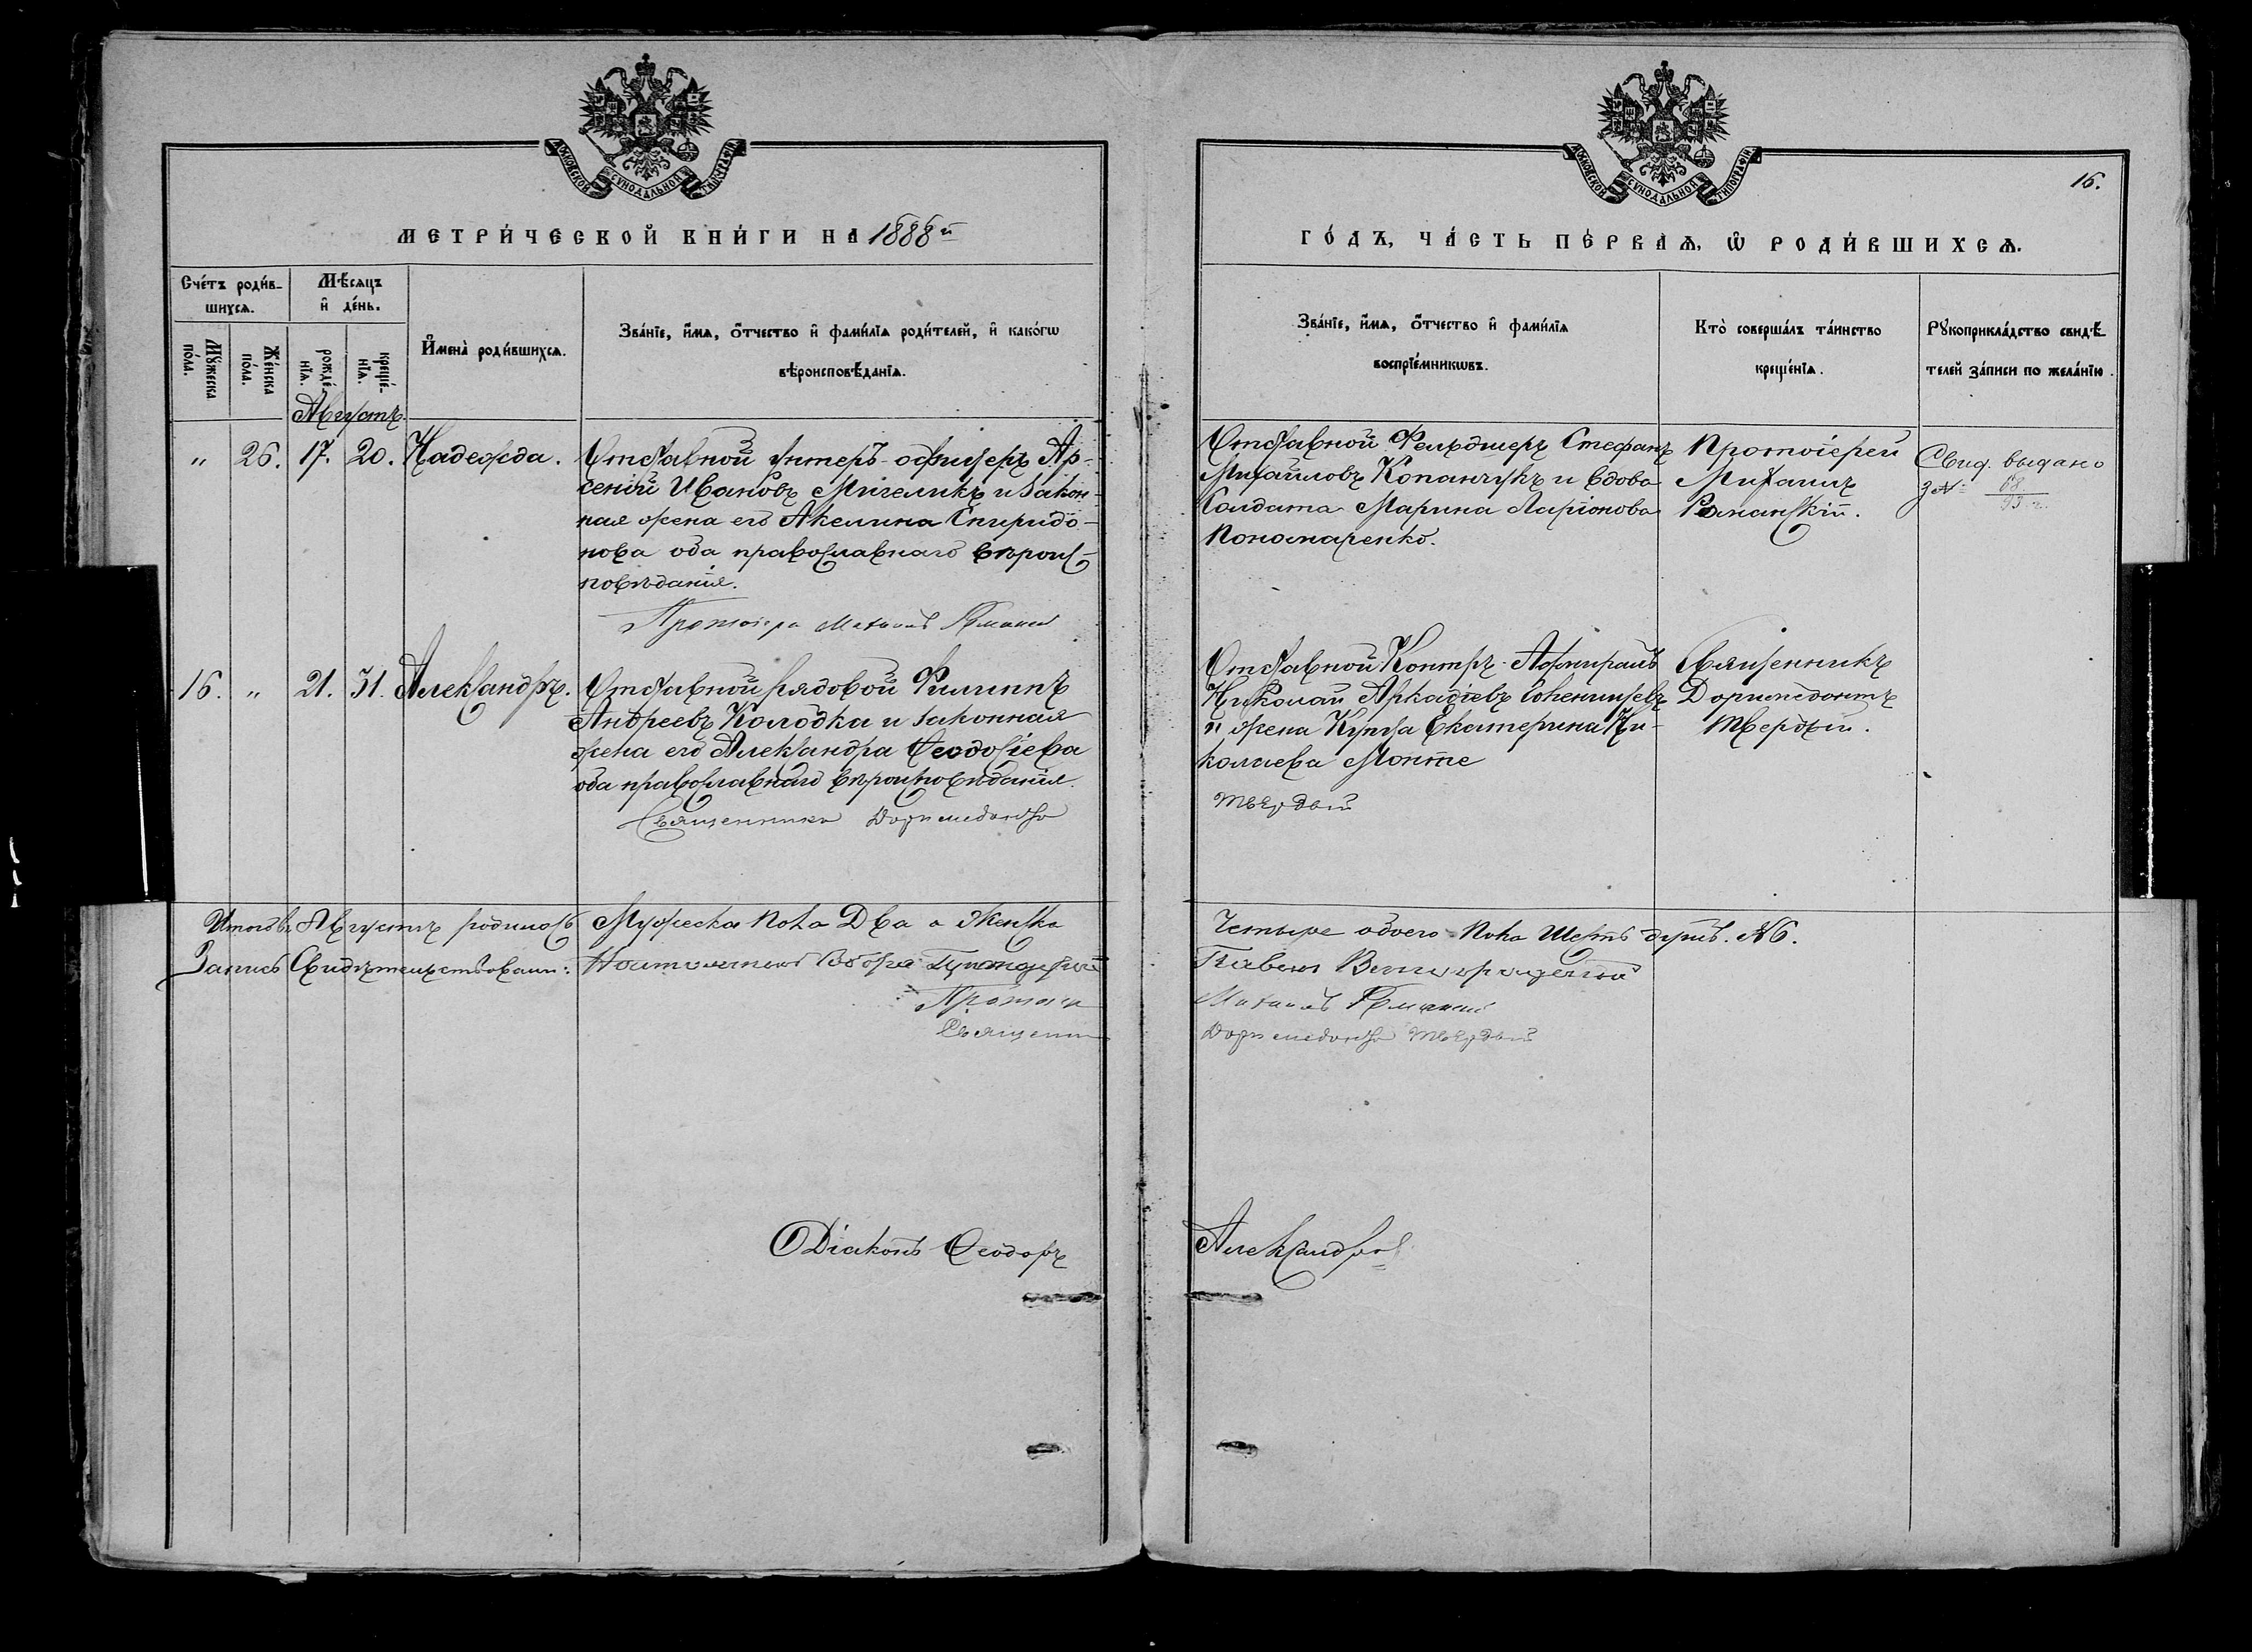 МОСКОВСКОЙ СѴНОДАЛЬНОЙ ТИПОГРАФІИ
МЕТРИ́ЧЕСКОЙ КНИ́ГИ НА 1888й
Сче́тъ роди́в-
шихсѧ.
Мѣсѧцъ
и҆ де́нь.
Мꙋ́жеска по́ла.
Же́нска по́ла.
рожде́-
нїѧ.
креще́-
нїѧ.
И҆мена̀ роди́вшихсѧ.
Зва́нїе, и҆́мѧ, ѻ҆́тчество и҆ фами́лїѧ роди́телей, и҆ како́гѡ
вѣроисповѣ́данїѧ.
Августъ
" 26. 17. 20. Надежда.
Отставной унтеръ-офицеръ Ар-
сеній Ивановъ Мигеликъ и закон-
ная жена его Акелина Спиридо-
нова оба православнаго вѣроис-
повѣданія.
16. " 21. 31. Александръ.
Отставной рядовой Филиппъ
Андреевъ Колодка и законная
жена его Александра Ѳеодосіева
оба православнаго вѣроисповѣданія.
Священникъ Доримедонтъ
Итого въ Августѣ родилось Мужеска пола Два а Женска
Запись Свидѣтельствовали:
Протоіер
Священн
Діаконъ Ѳеодоръ
16.
МОСКОВСКОЙ СѴНОДАЛЬНОЙ ТИПОГРАФІИ
ГО́ДЪ, ЧА́СТЬ ПЕ́РВАѦ, Ѡ҆ РОДИ́ВШИХСѦ.
Зва́нїе, и҆́мѧ, ѻ҆́тчество и҆ фами́лїѧ
воспрїе́мникѡвъ.
Кто̀ соверша́лъ та́инство
креще́нїѧ.
Рꙋкоприкла́дство свидѣ́-
телей за́писи по жела́нїю.
Отставной Фельдшеръ Стефанъ
Михайловъ Копанчукъ и вдова
Солдата Марина Ларіонова
Пономаренко.
Протоіерей
Михаилъ
Романскій.
Свид. выдано
за № 68
93 г.
Отставной Контръ-Адмиралъ
Николай Аркадіевъ
и жена Купца Екатерина Ни-
колаева Монте
Твердый
Священникъ
Доримедонтъ
Твердый.
Четыре обоего пола Шесть душъ. №6.
Павелъ
Михаилъ
Доримедонтъ Твердый
Александровъ